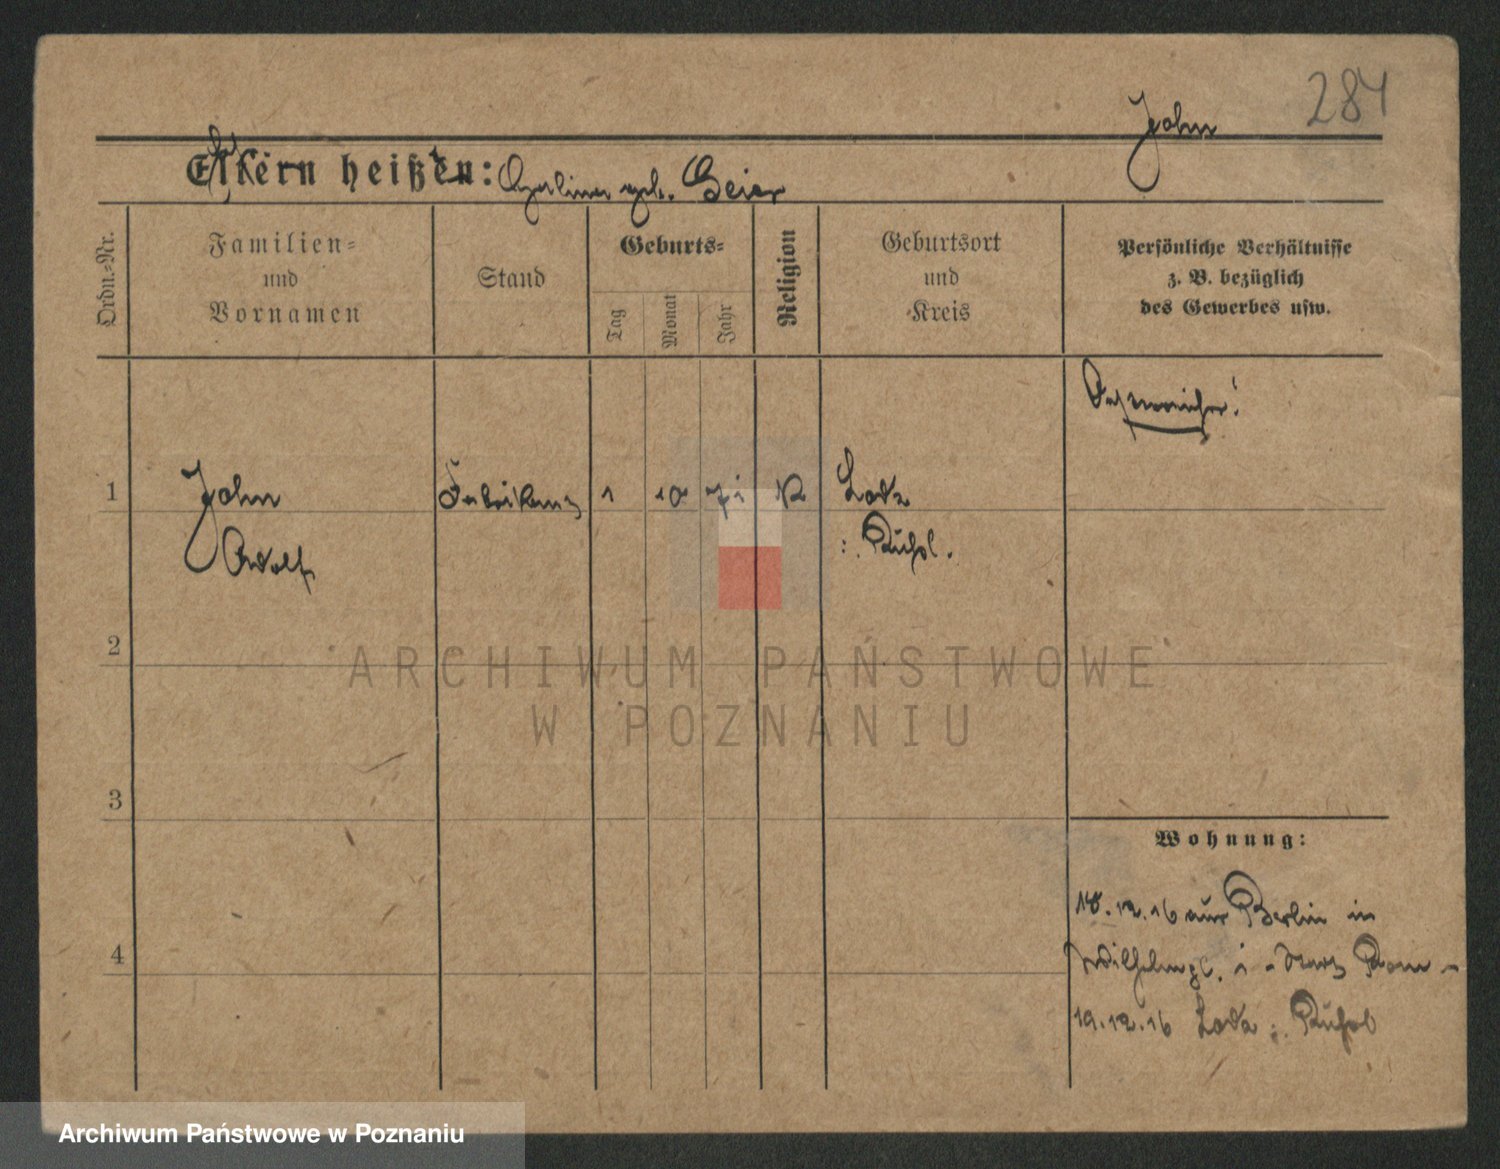 284
John
Eltern heißen: geb. Geier
Ordn.-Nr.
Familien-
und
Vornamen
Stand
Geburts-
Tag
Monat
Jahr
Religion
Geburtsort
und
Kreis
Persönliche Verhältnisse
z. B. bezüglich
des Gewerbes usw.
1
John
Adolf
Fabrikant
1
10
71
Lodz
Rußl.
2
3
4
Wohnung:
18.12.16 aus Berlin in
Wilhelmpl. 1
19.12.16 Lodz i. Rußl
ARCHIWUM PAŃSTWOWE
W POZNANIU
Archiwum Państwowe w Poznaniu